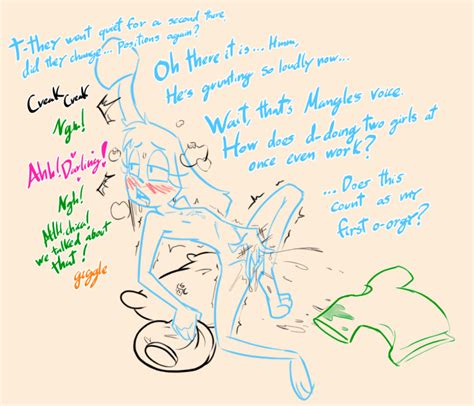 T-they went quiet for a second there
did they change... Positions again?
Oh there it is... Hmm,
He's grunting so loudly now...
Wait, that's Mangle's voice.
How does d-doing two girls at
once even work?
... Does this
count as my
first o-orgy?
Creak Creak
Ngh!
Ahh! Darling!
Ngh!
we talked about
that!
giggle